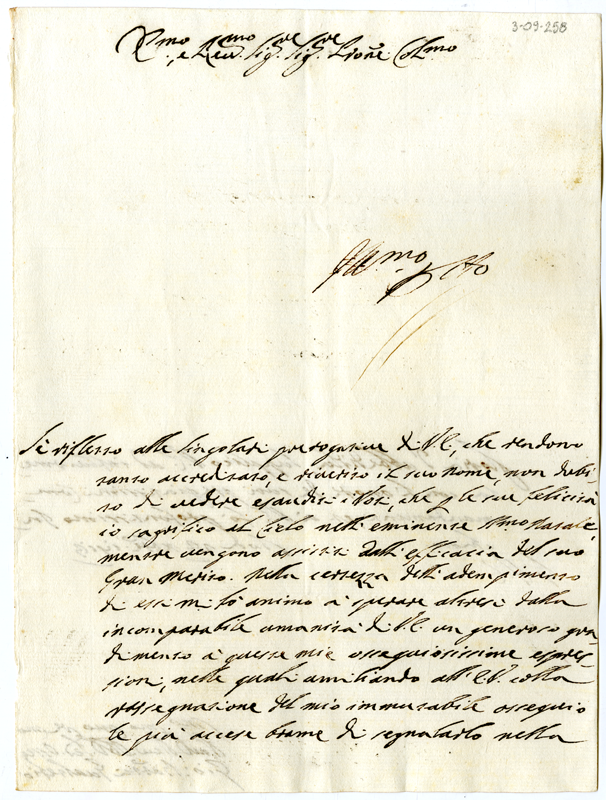 3-09-258
E.mo, e Rev.mo Sig.re Sig.re Prone Col.mo
Se rifletto alle singolari prerogative di V.E., che rendono
tanto accreditato, e riverito il suo nome, non dubi-
to di vedere esauditi i voti, che p le sue felicità
io sagrifico al Cielo nell' eminente S.mo Natale,
mentre vengono assistiti dall' efficacia del suo
Gran Merito. Nella certezza dell' adempimento
di essi mi fò animo à sperare altresì dalla
incomparabile umanità di V.E. un generoso gra
dimento à queste mie ossequiosissime espres-
sioni, nelle quali umiliando all' E.V. colla
rassegnazione del mio immutabile ossequio
le più accese brame di segnalarlo nella